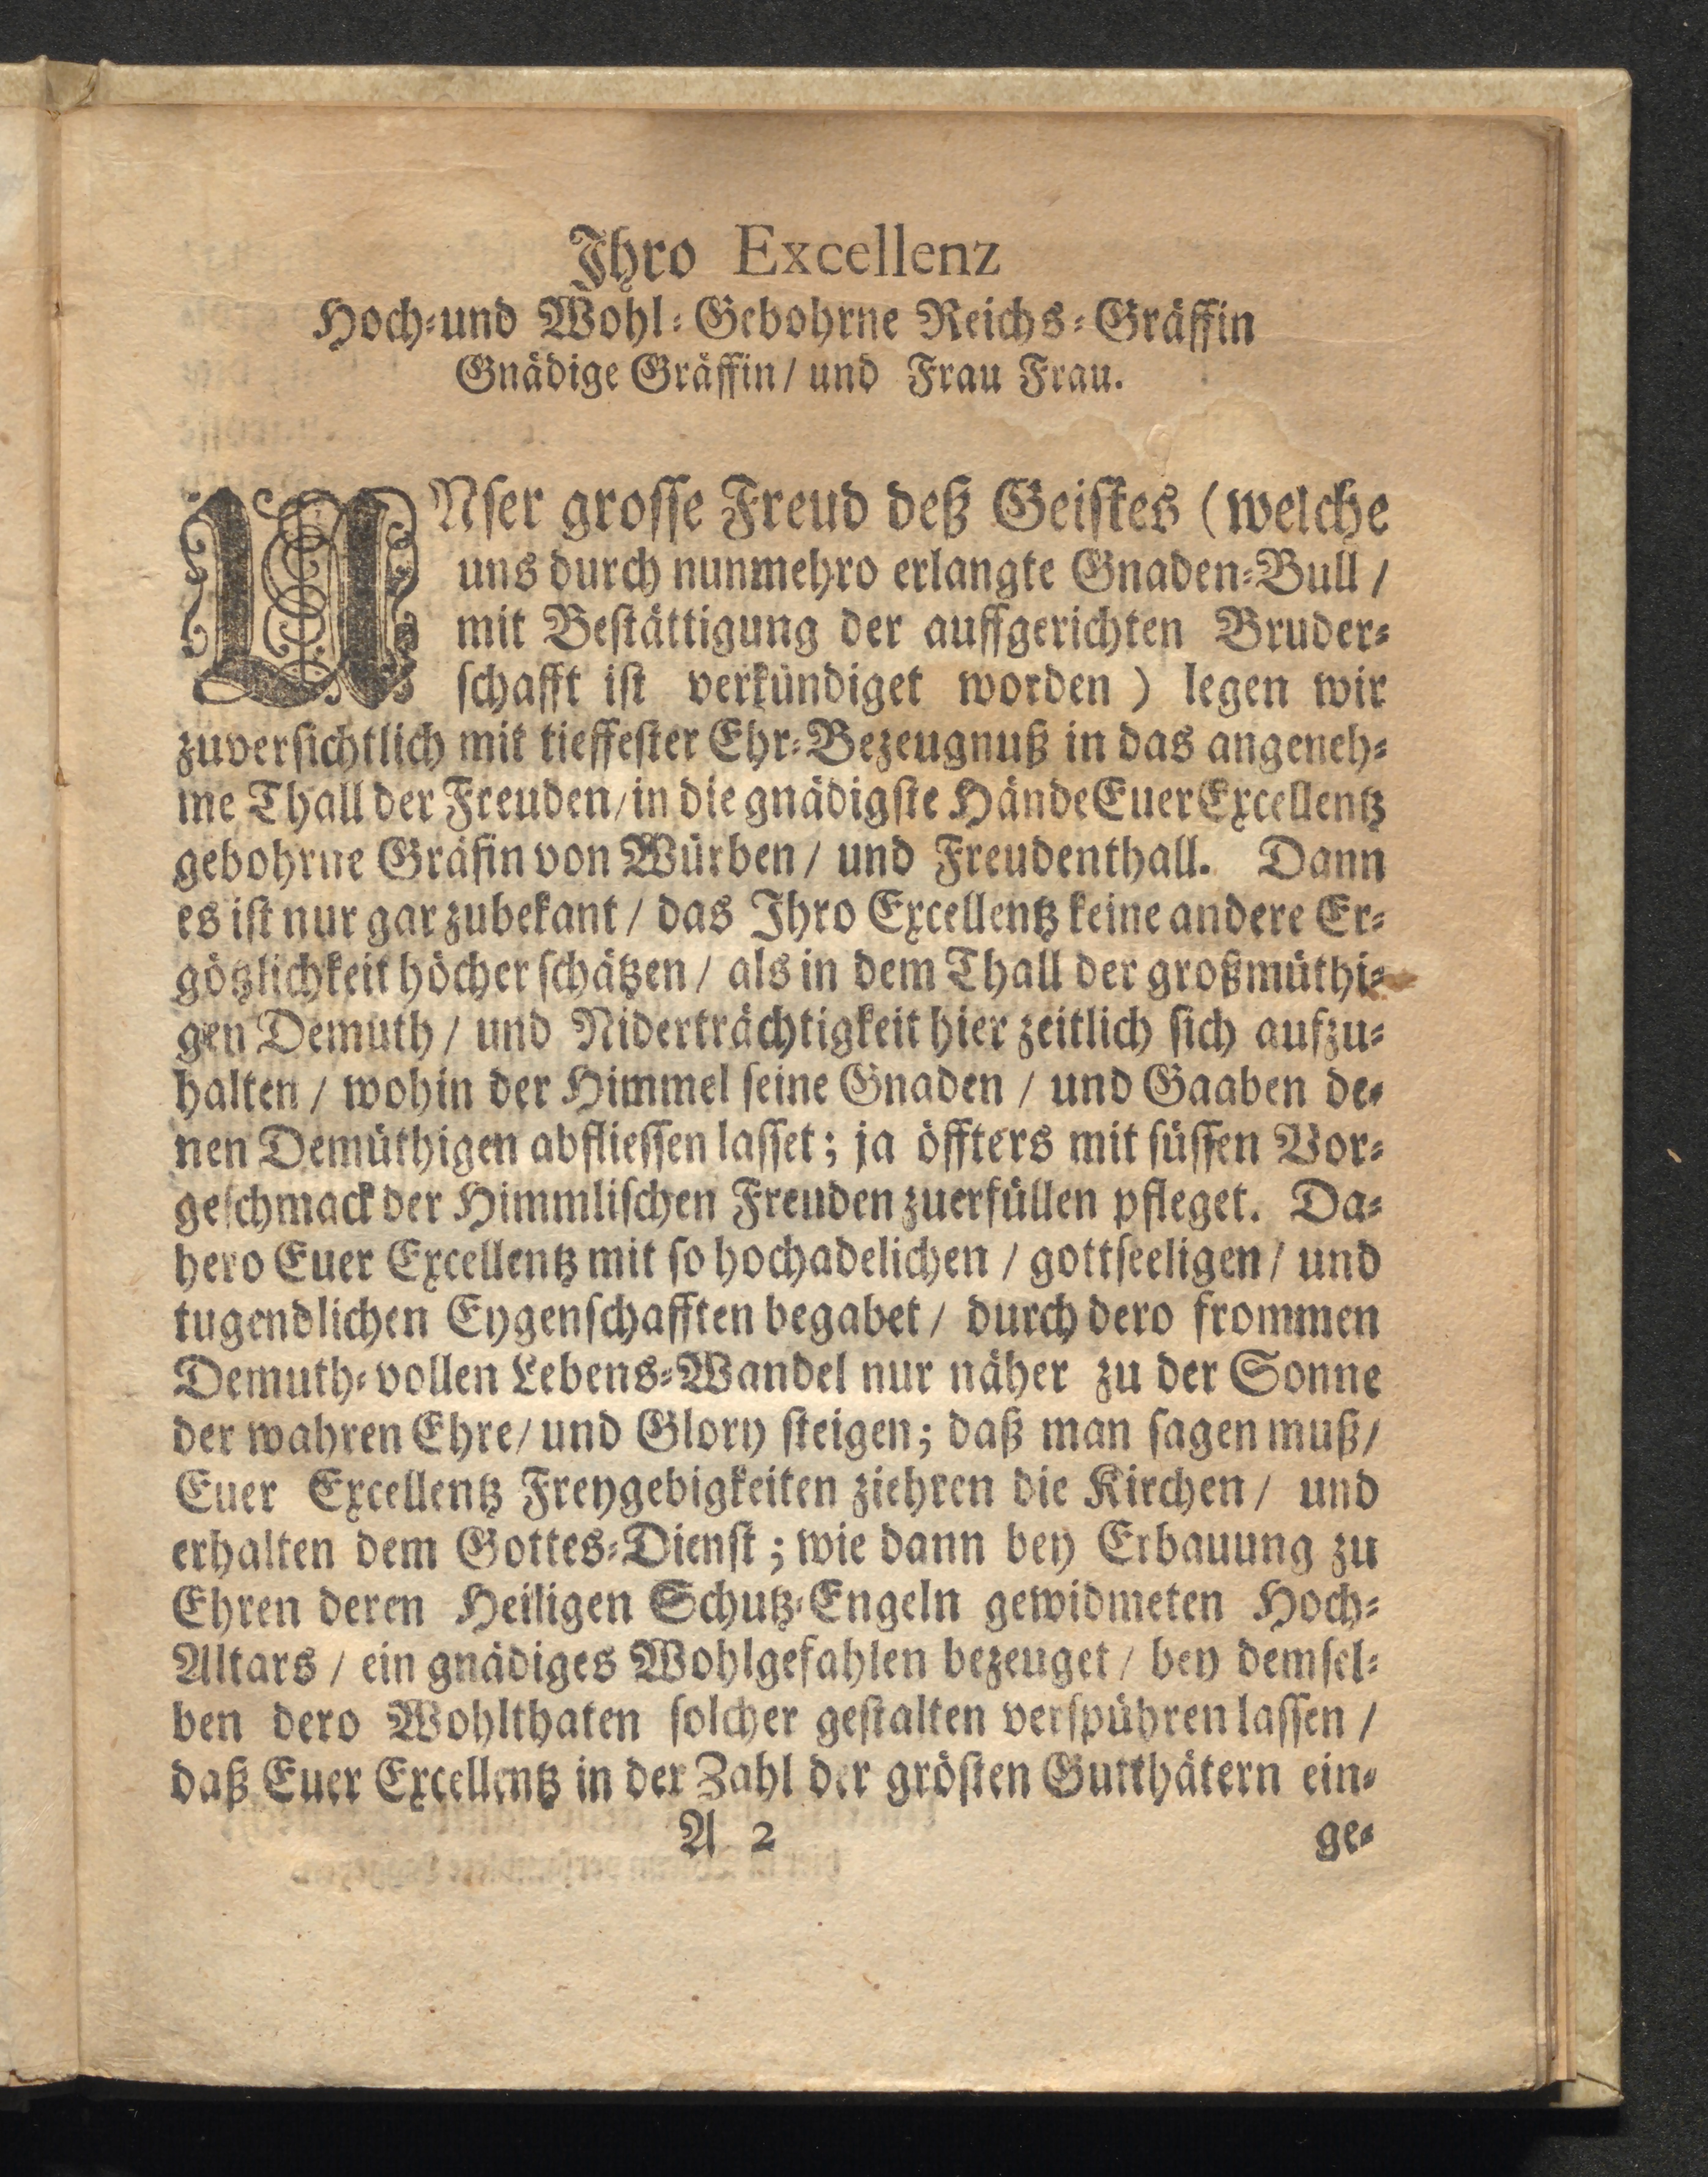 Ihro Excellenz
Hoch-und Wohl-Gebohrne Reichs-Gräffin
Gnädige Gräffin/ und Frau Frau.
UNser grosse Freud deß Geistes (welche
uns durch nunmehro erlangte Gnaden-Bull /
mit Bestättigung der auffgerichten Bruder-
schafft ist verkündiget worden ) legen wir
zuversichtlich mit tieffester Ehr-Bezeugnuß in das angeneh-
me Thall der Freuden/in die gnädigste Hände Euer Excellentz
gebohrne Gräfin von Würben / und Freudenthall. Dann
es ist nur gar zubekant / das Ihro Excellentz keine andere Er-
götzlichkeit höcher schätzen / als in dem Thall der großmüthi-
gen Demuth / und Niderträchtigkeit hier zeitlich sich aufzu-
halten / wohin der Himmel seine Gnaden / und Gaaben de-
nen Demüthigen abfliessen lasset; ja öffters mit süssen Vor-
geschmack der Himmlischen Freuden zuerfüllen pfleget. Da-
hero Euer Excellentz mit so hochadelichen / gottseeligen / und
tugendlichen Eygenschafften begabet / durch dero frommen
Demuth-vollen Lebens-Wandel nur näher zu der Sonne
der wahren Ehre/ und Glory steigen; daß man sagen muß/
Euer Excellentz Freygebigkeiten ziehren die Kirchen / und
erhalten dem Gottes-Dienst; wie dann bey Erbauung zu
Ehren deren Heiligen Schutz-Engeln gewidmeten Hoch-
Altars / ein gnädiges Wohlgefahlen bezeuget / bey demsel-
ben dero Wohlthaten solcher gestalten verspühren lassen /
daß Euer Excellentz in der Zahl der grösten Gutthätern ein-
A 2 ge-